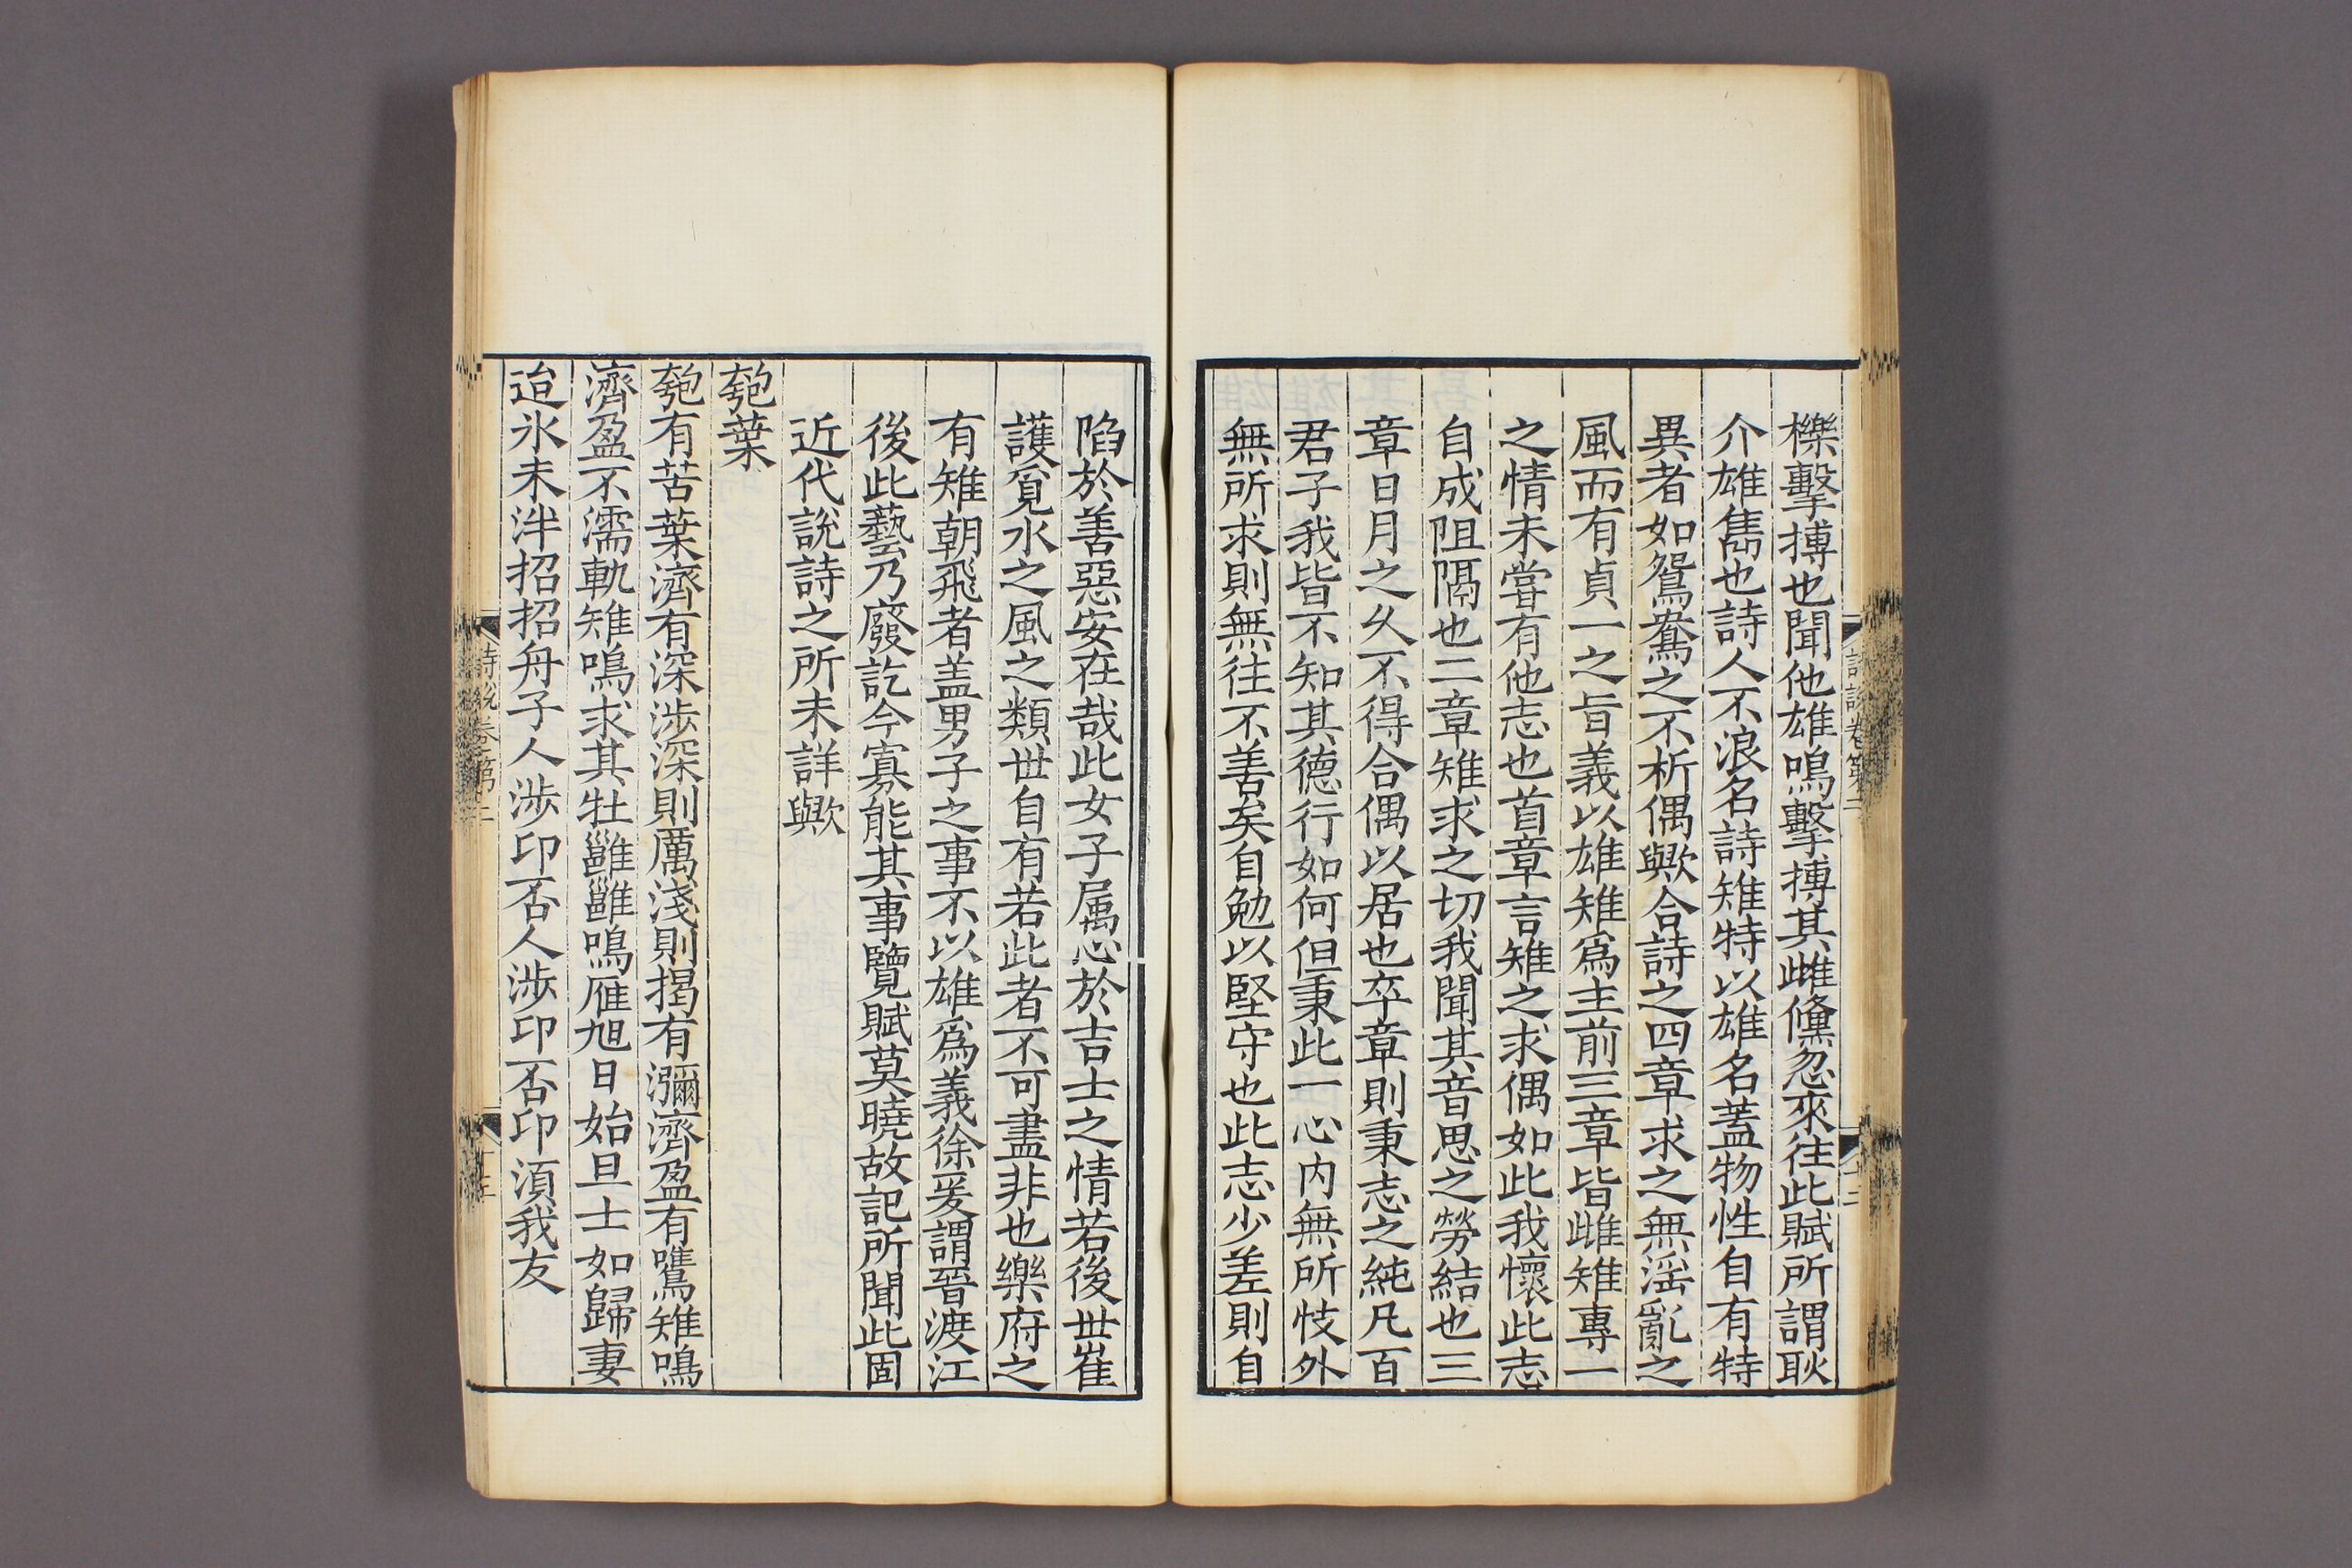 櫟擊搏也聞他雄鳴擊搏其雌儵忽來往此賦所謂耿
介雄雋也詩人不浪名詩雉特以雄名蓋物性自有特
異者如鴛鴦之不析偶歟合詩之四章求之無淫亂之
風而有貞一之旨義以雄雉爲主前三章皆雌雉專一
之情未嘗有他志也首章言雉之求偶如此我懷此志
自成阻隔也二章雉求之切我聞其音思之勞結也三
章日月之久不得合偶以居也卒章則秉志之純凡百
君子我皆不知其德行如何但秉此一心内無所忮外
無所求則無往不善矣自勉以堅守也此志少差則自
詩說卷第二
十二
陷於善惡安在哉此女子属心於吉士之情若後世崔
護覓水之風之類世自有若此者不可盡非也樂府之
有雉朝飛者盖男子之事不以雄爲義徐爰謂晉渡江
後此藝乃廢訖今寡能其事覽賦莫曉故記所聞此固
近代說詩之所未詳歟
匏葉
匏有苦葉濟有深涉深則厲淺則揭有瀰濟盈有鷕雉鳴
濟盈不濡軌雉鳴求其牡雝雝鳴雁旭日始旦士如歸妻
迨氷未泮招招舟子人涉卬否人涉卬否卬湏我友
詩說卷第二